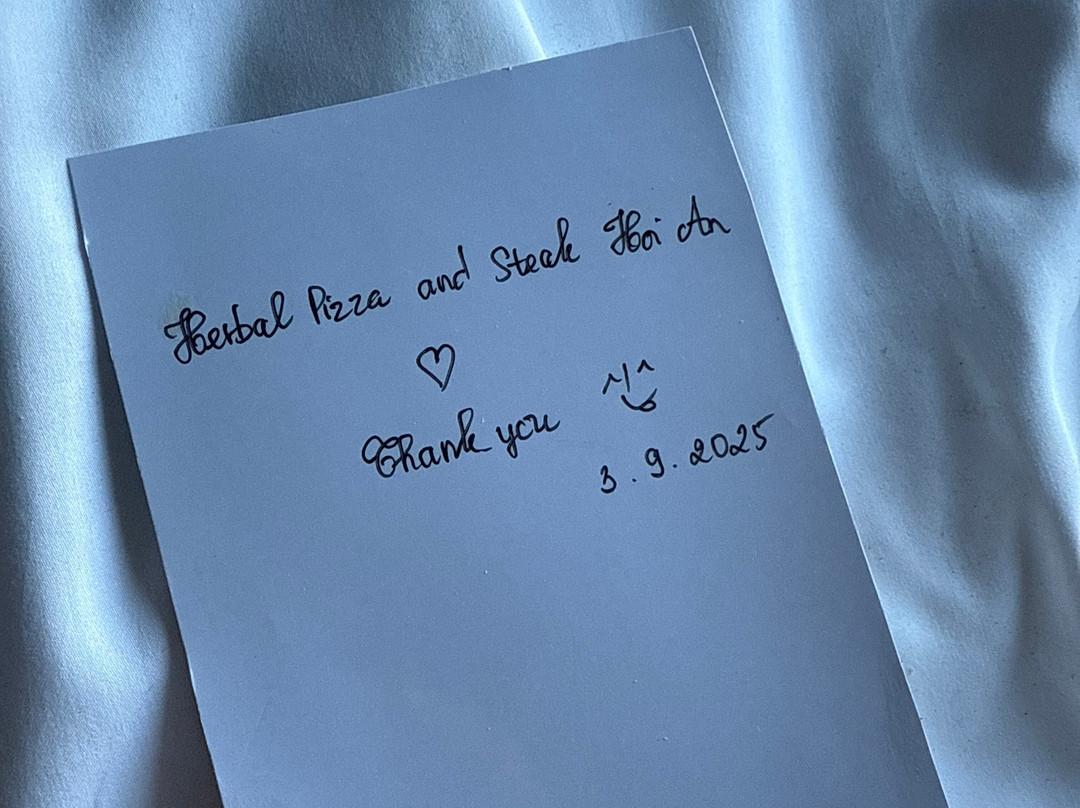 Herbal Pizza and Steak Hoi An
♡
Thank you
3.9.2025